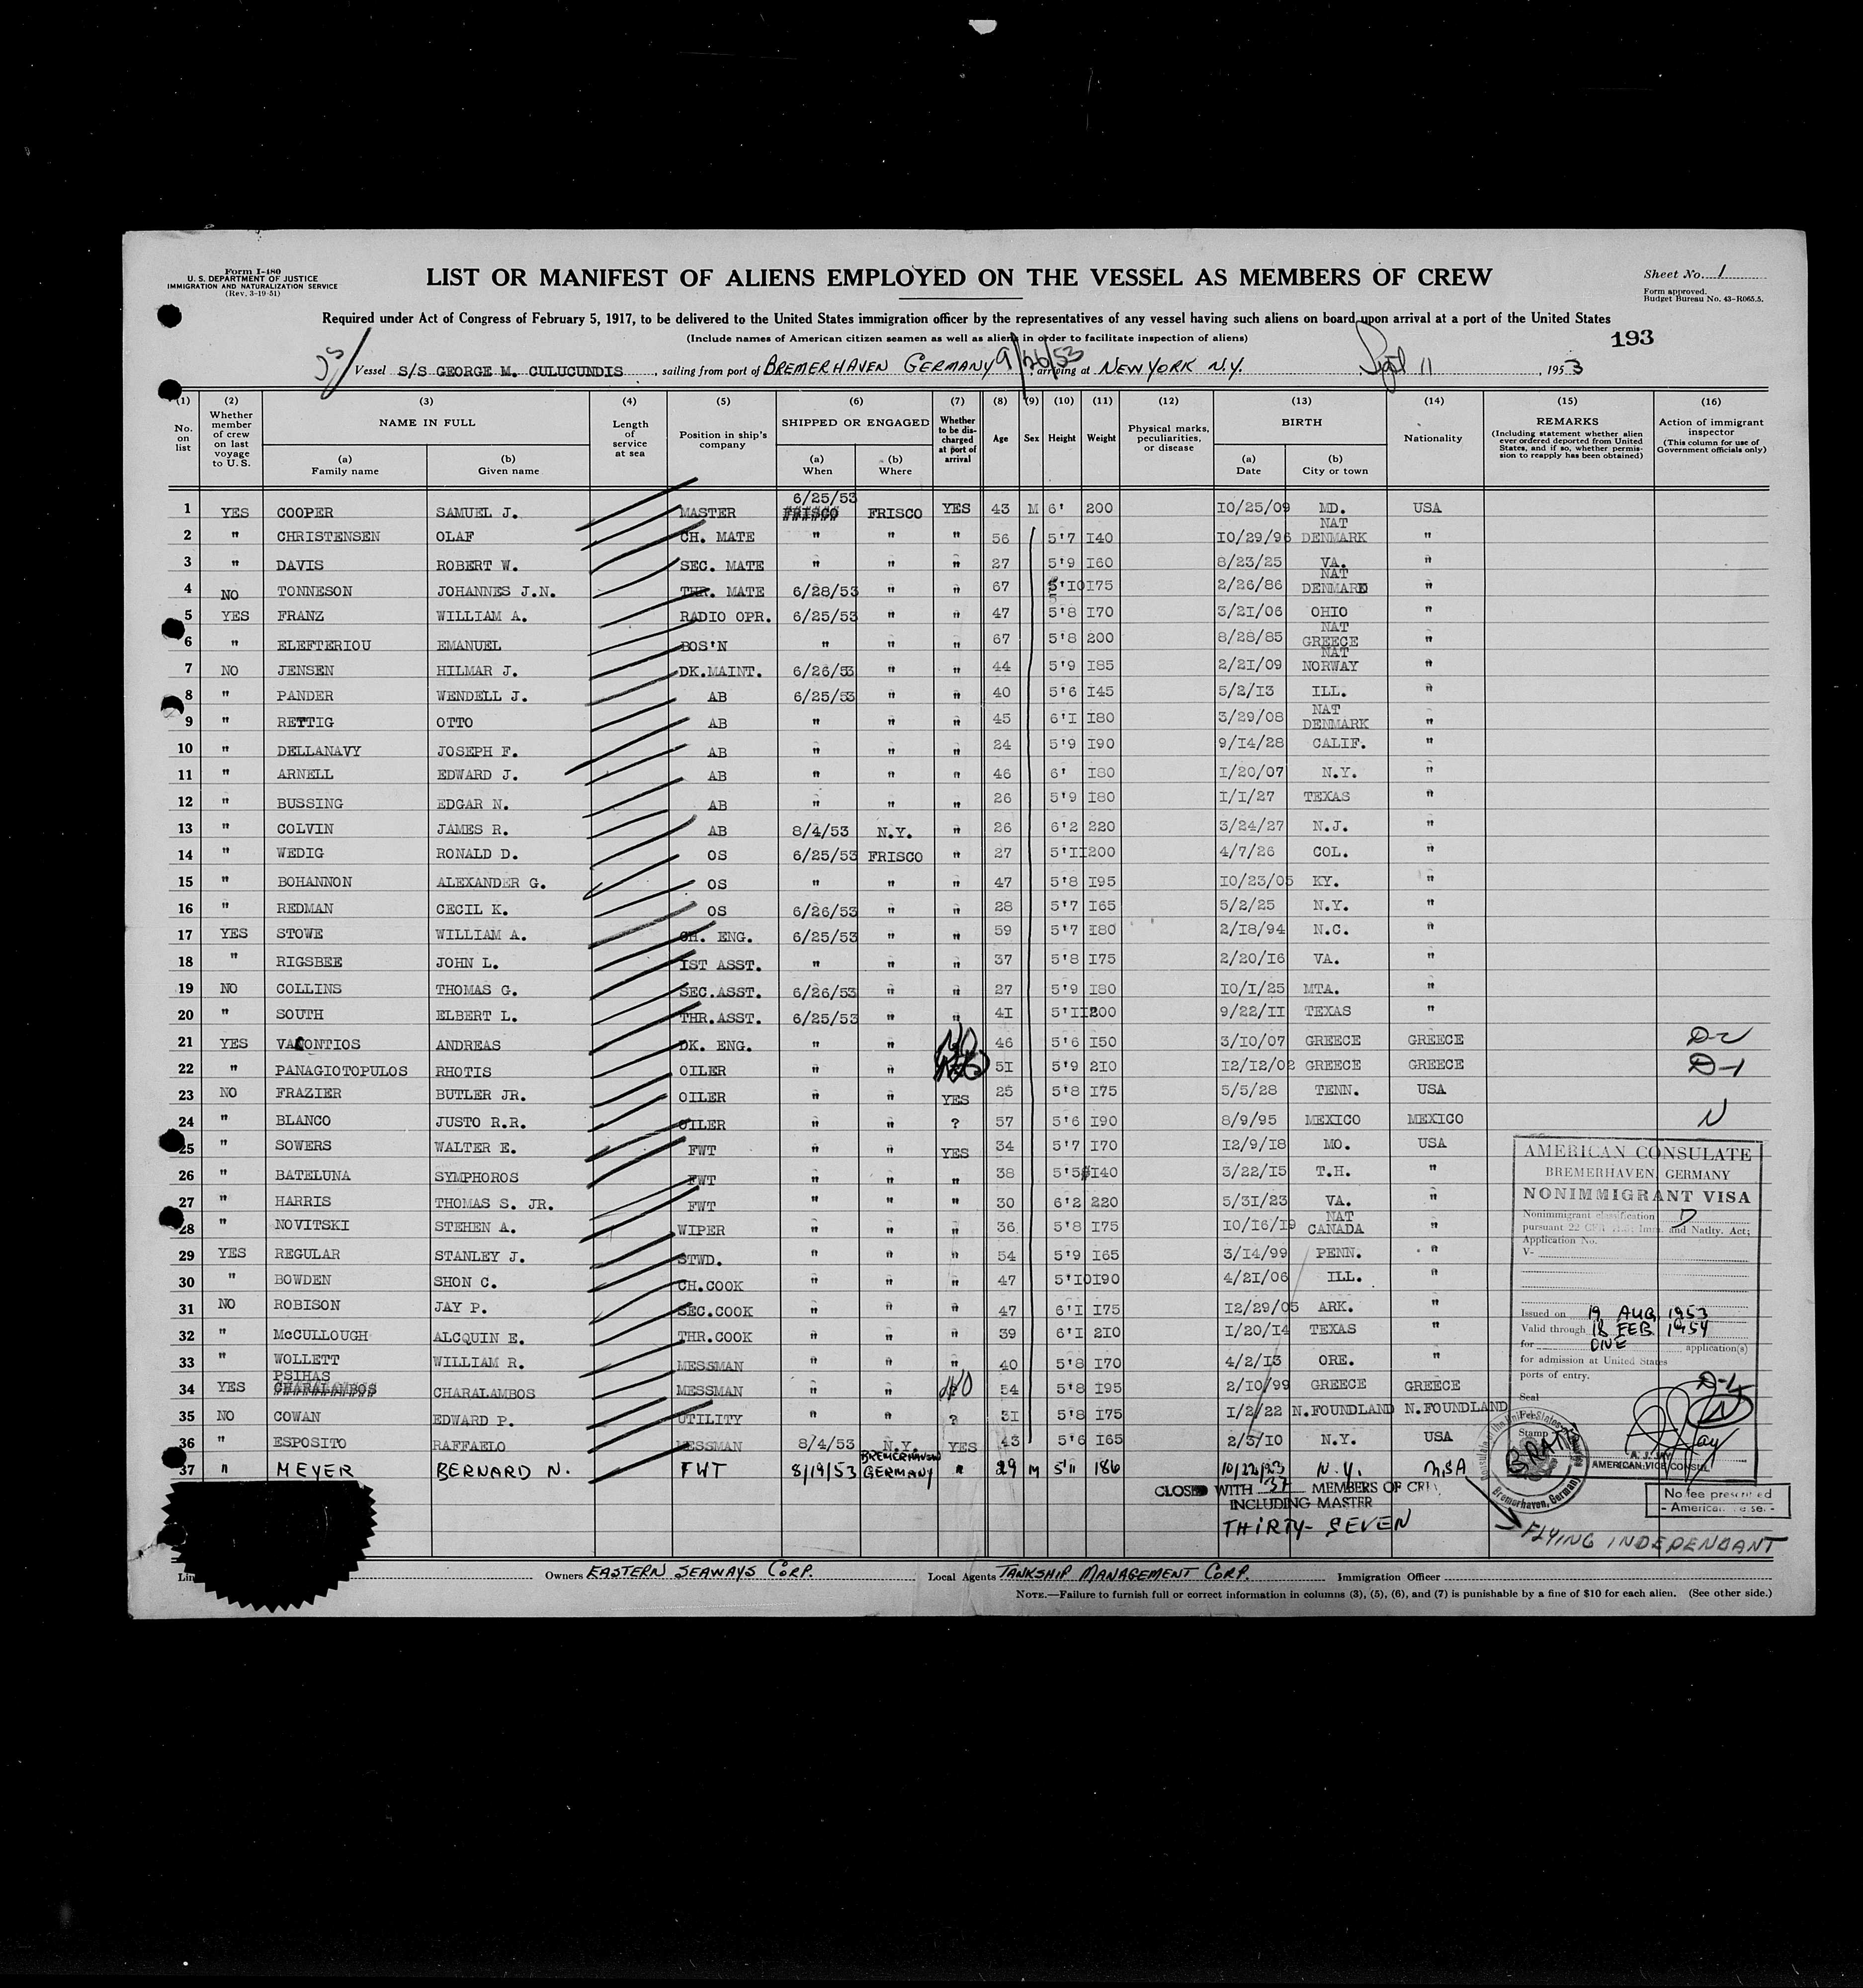 Form I-480
U. S. DEPARTMENT OF JUSTICE
IMMIGRATION AND NATURALIZATION SERVICE
(Rev. 3-19-51)
LIST OR MANIFEST OF ALIENS EMPLOYED ON THE VESSEL AS MEMBERS OF CREW
Sheet No. 1
Form approved.
Budget Bureau No. 43-R065.5.
Required under Act of Congress of February 5, 1917, to be delivered to the United States immigration officer by the representatives of any vessel having such aliens on board upon arrival at a port of the United States
(Include names of American citizen seamen as well as aliens in order to facilitate inspection of aliens)
193
Vessel S/S GEORGE M. CULUCUNDIS, sailing from port of BREMERHAVEN GERMANY 9/26/53, arriving at NEW YORK N.Y. Sept 11, 1953
(1) No. on list (2) Whether member of crew on last voyage to U.S. (3) NAME IN FULL (a) Family name (b) Given name (4) Length of service at sea (5) Position in ship's company (6) SHIPPED OR ENGAGED (a) When (b) Where (7) Whether to be discharged at port of arrival (8) Age (9) Sex (10) Height (11) Weight (12) Physical marks, peculiarities, or disease (13) BIRTH (a) Date (b) City or town (14) Nationality (15) REMARKS (Including statement whether alien ever ordered deported from United States, and if so, whether permission to reapply has been obtained) (16) Action of immigrant inspector (This column for use of Government officials only)
1 YES COOPER SAMUEL J. MASTER 6/25/53 FRISCO FRISCO YES 43 M 6' 200 10/25/09 MD. USA
2 " CHRISTENSEN OLAF CH. MATE " " " 56 5'7 140 10/29/96 NAT DENMARK "
3 " DAVIS ROBERT W. SEC. MATE " " " 27 5'9 160 8/23/25 VA. "
4 NO TONNESON JOHANNES J.N. THR. MATE 6/28/53 " " 67 5'10 175 2/26/86 NAT DENMARD "
5 YES FRANZ WILLIAM A. RADIO OPR. 6/25/53 " " 47 5'8 170 3/21/06 OHIO "
6 " ELEFTERIOU EMANUEL BOS'N " " " 67 5'8 200 8/28/85 NAT GREECE "
7 NO JENSEN HILMAR J. DK.MAINT. 6/26/53 " " 44 5'9 185 2/21/09 NAT NORWAY "
8 " PANDER WENDELL J. AB 6/25/53 " " 40 5'6 145 5/2/13 ILL. "
9 " RETTIG OTTO AB " " " 45 6'1 180 3/29/08 NAT DENMARK "
10 " DELLANAVY JOSEPH F. AB " " " 24 5'9 190 9/14/28 CALIF. "
11 " ARNELL EDWARD J. AB " " " 46 6' 180 1/20/07 N.Y. "
12 " BUSSING EDGAR N. AB " " " 26 5'9 180 1/1/27 TEXAS "
13 " COLVIN JAMES R. AB 8/4/53 N.Y. " 26 6'2 220 3/24/27 N.J. "
14 " WEDIG RONALD D. OS 6/25/53 FRISCO " 27 5'11 200 4/7/26 COL. "
15 " BOHANNON ALEXANDER G. OS " " " 47 5'8 195 10/23/05 KY. "
16 " REDMAN CECIL K. OS 6/26/53 " " 28 5'7 165 5/2/25 N.Y. "
17 YES STOWE WILLIAM A. CH. ENG. 6/25/53 " " 59 5'7 180 2/18/94 N.C. "
18 " RIGSBEE JOHN L. 1ST ASST. " " " 37 5'8 175 2/20/16 VA. "
19 NO COLLINS THOMAS G. SEC.ASST. 6/26/53 " " 27 5'9 180 10/1/25 MTA. "
20 " SOUTH ELBERT L. THR.ASST. 6/25/53 " " 41 5'11 200 9/22/11 TEXAS "
21 YES VACONTIOS ANDREAS DK. ENG. " " 46 5'6 150 3/10/07 GREECE GREECE D-2
22 " PANAGIOTOPULOS RHOTIS OILER " " 51 5'9 210 12/12/02 GREECE GREECE D-1
23 NO FRAZIER BUTLER JR. OILER " " YES 25 5'8 175 5/5/28 TENN. USA
24 " BLANCO JUSTO R.R. OILER " " ? 57 5'6 190 8/9/95 MEXICO MEXICO N
25 " SOWERS WALTER E. FWT " " YES 34 5'7 170 12/9/18 MO. USA
26 " BATELUNA SYMPHOROS FWT " " " 38 5'5 140 3/22/15 T.H. "
27 " HARRIS THOMAS S. JR. FWT " " " 30 6'2 220 5/31/23 VA. "
28 " NOVITSKI STEHEN A. WIPER " " " 36 5'8 175 10/16/19 NAT CANADA "
29 YES REGULAR STANLEY J. STWD. " " " 54 5'9 165 3/14/99 PENN. "
30 " BOWDEN SHON C. CH.COOK " " " 47 5'10 190 4/21/06 ILL. "
31 NO ROBISON JAY P. SEC.COOK " " " 47 6'1 175 12/29/05 ARK. "
32 " McCULLOUGH ALCQUIN E. THR.COOK " " " 39 6'1 210 1/20/14 TEXAS "
33 " WOLLETT WILLIAM R. MESSMAN " " " 40 5'8 170 4/2/13 ORE. "
34 YES PSIHAS CHARALAMBOS CHARALAMBOS MESSMAN " " NO 54 5'8 195 2/10/99 GREECE GREECE D-1
35 NO COWAN EDWARD P. UTILITY " " ? 31 5'8 175 1/2/22 N.FOUNDLAND N.FOUNDLAND N
36 " ESPOSITO RAFFAELO MESSMAN 8/4/53 N.Y. YES 43 5'6 165 2/3/10 N.Y. USA
37 " MEYER BERNARD N. FWT 8/19/53 BREMERHAVEN GERMANY " 29 M 5'11 186 10/22/23 N.Y. USA
AMERICAN CONSULATE
BREMERHAVEN, GERMANY
NONIMMIGRANT VISA
Nonimmigrant classification D
pursuant 22 CFR Imm. and Natlty. Act;
Application No.
V-
Issued on 19 AUG 1953
Valid through 18 FEB. 1954
for ONE application(s)
for admission at United States
ports of entry.
Seal
Stamp
GRATIS
A. J. JAY
AMERICAN VICE CONSUL
Bremerhaven, Germany
No fee prescribed
- American
CLOSED WITH 37 MEMBERS OF CREW
INCLUDING MASTER
THIRTY-SEVEN
FLYING INDEPENDANT
Lin Owners EASTERN SEAWAYS CORP. Local Agents TANKSHIP MANAGEMENT CORP. Immigration Officer
NOTE.—Failure to furnish full or correct information in columns (3), (5), (6), and (7) is punishable by a fine of $10 for each alien. (See other side.)